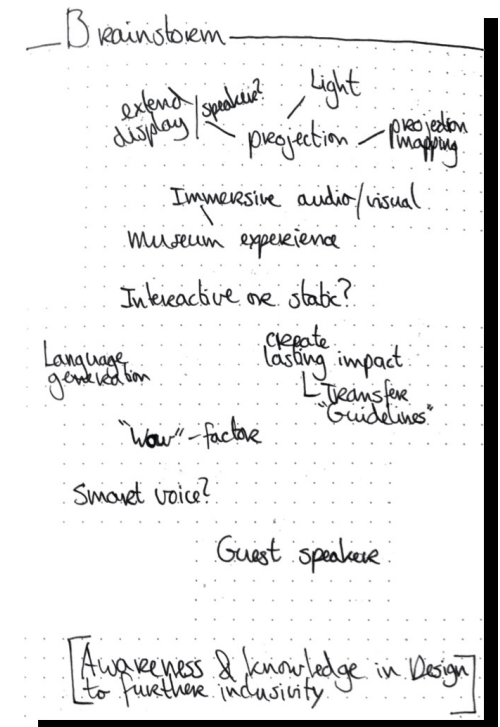 Brainstorm
Light
extend
display
speaker?
projection
projection
mapping
Immersive audio/visual
Museum experience
Interactive or static?
Language
generation
create
lasting impact
Transfer
"Guidelines"
"Wow"-factor
Smart voice?
Guest speaker
[Awareness & knowledge in Design
to further inclusivity]